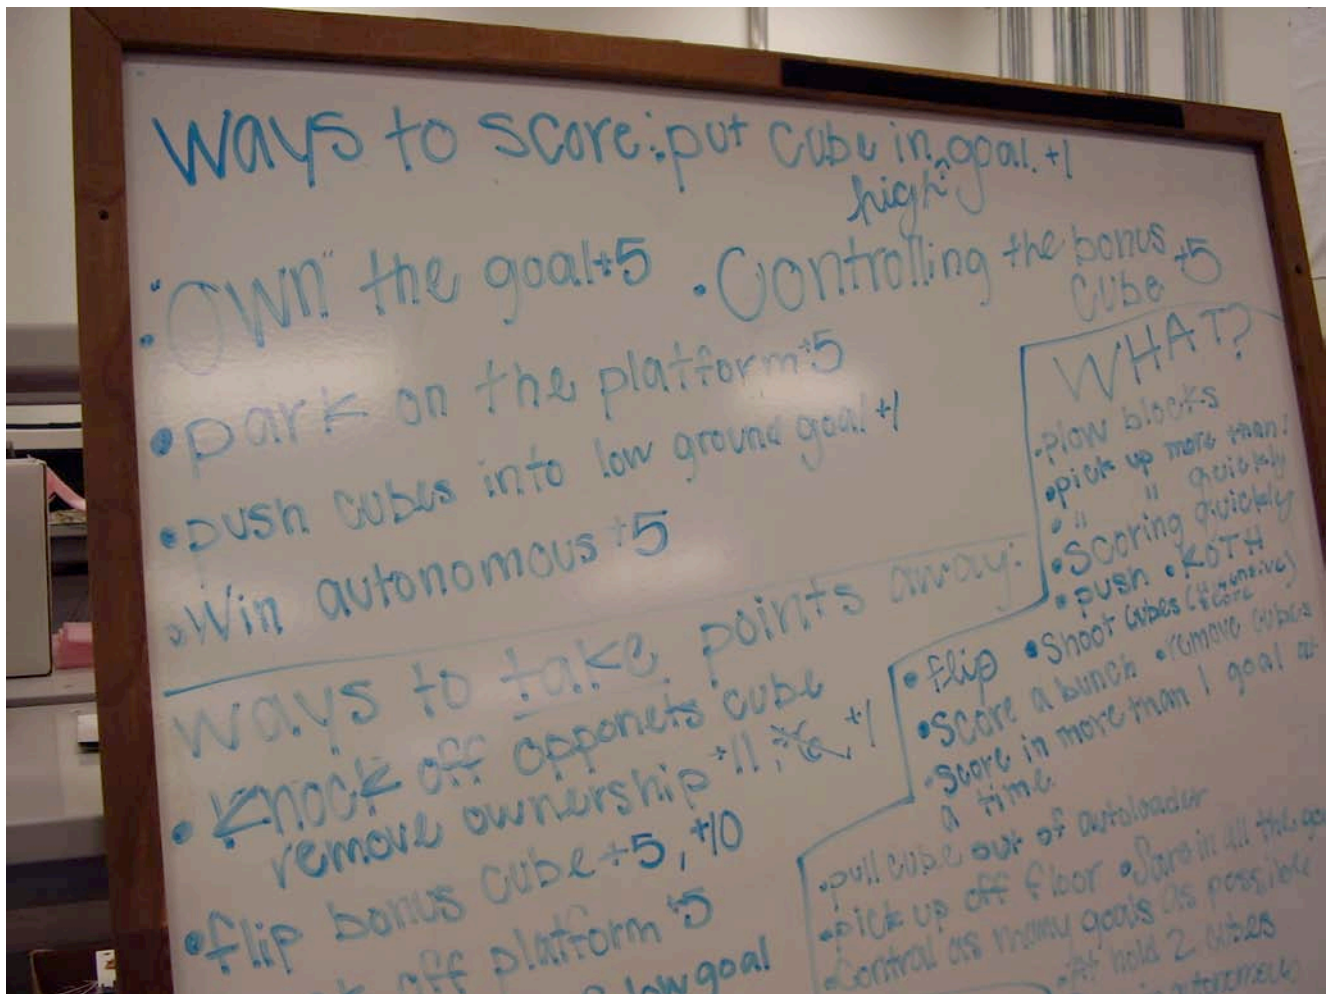 Ways to score: put cube in high goal +1
• "Own" the goal +5
• Controlling the bonus cube +5
• park on the platform +5
• push cubes into low ground goal +1
• Win autonomous +5
ways to take points away:
• Knock off opponets cube
remove ownership +11, +1
• flip bonus cube +5, +10
off platform +5
low goal
WHAT?
• plow blocks
• pick up more than 1
• " " quickly
• Scoring quickly
• push • KOTH
• flip • shoot cubes
• score a bunch • remove cubes
• score in more than 1 goal at
a time
• pull cube out of autoloader
• pick up off floor • in all the
• Control as many goals as possible
• hold 2 cubes
autonomous